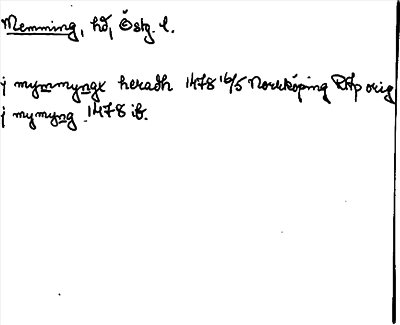 Memming, hd, Östg. l.
j mymmyngx heradh 1478 16/5 Norrköping RAp orig
j mymyng 1478 ib.